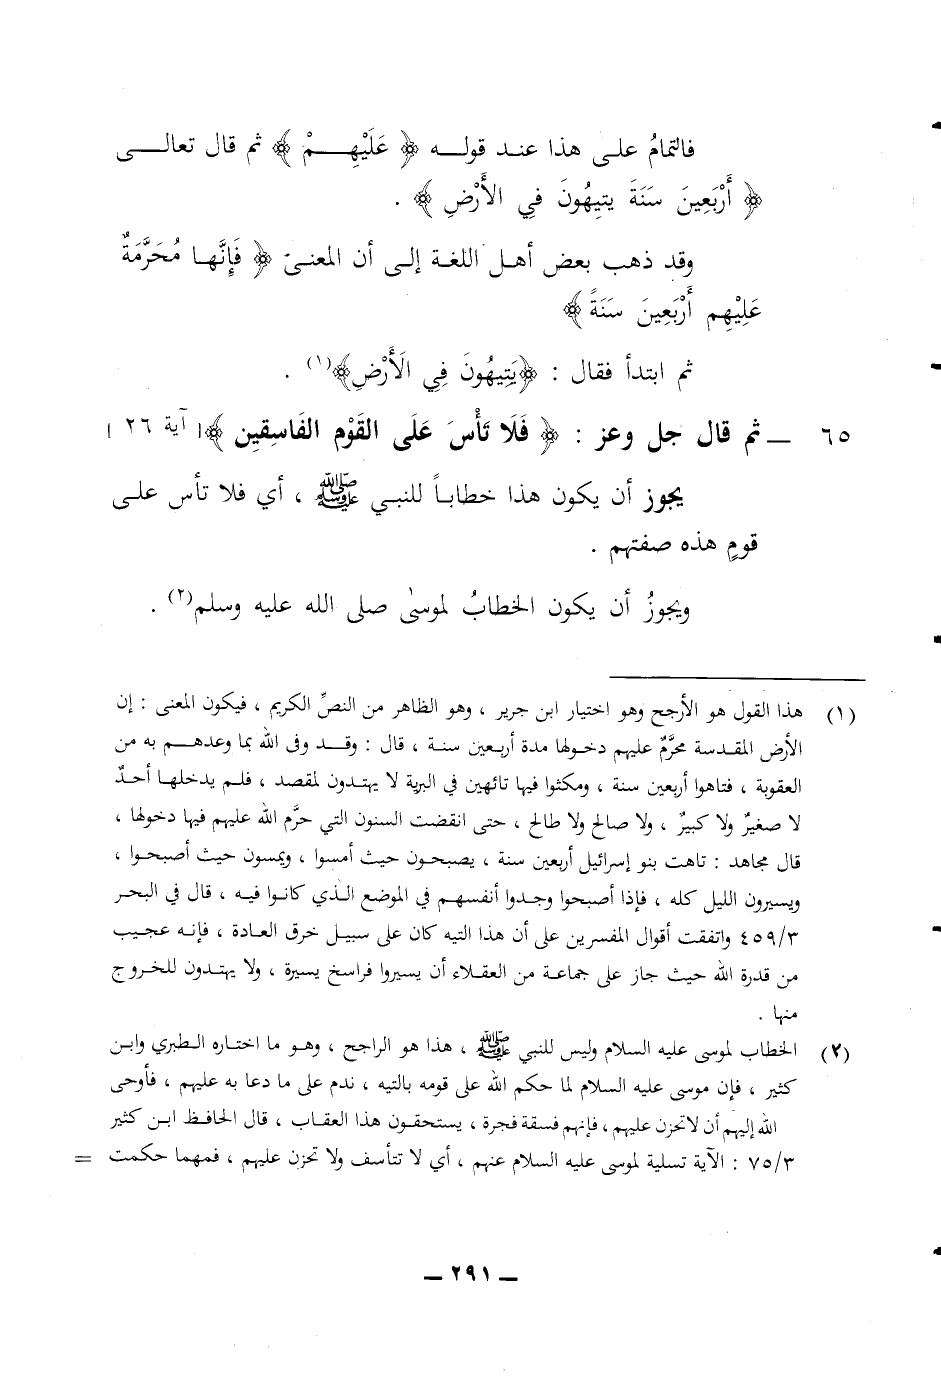 فالتمامُ على هذا عند قوله ﴿ عَلَيْهِمْ ﴾ ثم قال تعالى
﴿ أَرْبَعِينَ سَنَةَ يتِيهُونَ فِي الأَرْضِ ﴾ .
وقد ذهب بعض أهل اللغة إلى أن المعنىٰ ﴿ فَإِنَّهَا مُحَرَّمَةٌ
عَلِيْهِم أَرْبَعِينَ سَنَةً ﴾
ثم ابتدأ فقال : ﴿يَتِيهُونَ فِي الَأَرْضِ﴾(١) .
٦٥ ــ ثم قال جل وعز : ﴿ فَلَا تَأْسَ عَلَى القَوْمِ الفَاسِقِين ﴾[ آية ٢٦ ]
يجوز أن يكون هذا خطاباً للنبي ﷺ ، أي فلا تأس على
قومٍ هذه صفتهم .
ويجوزُ أن يكون الخطابُ لموسىٰ صلى الله عليه وسلم(٢) .
(١) هذا القول هو الأرجح وهو اختيار ابن جرير ، وهو الظاهر من النصِّ الكريم ، فيكون المعنى : إن
الأرض المقدسة محرَّمٌ عليهم دخولها مدة أربعين سنة ، قال : وقد وفى الله بما وعدهم به من
العقوبة ، فتاهوا أربعين سنة ، ومكثوا فيها تائهين في البرية لا يهتدون لمقصد ، فلم يدخلها أحدٌ
لا صغيرٌ ولا كبيرٌ ، ولا صالح ولا طالح ، حتى انقضت السنون التي حرَّم الله عليهم فيها دخولها ،
قال مجاهد : تاهت بنو إسرائيل أربعين سنة ، يصبحون حيث أمسوا ، ويمسون حيث أصبحوا ،
ويسيرون الليل كله ، فإذا أصبحوا وجدوا أنفسهم في الموضع الذي كانوا فيه ، قال في البحر
٤٥٩/٣ واتفقت أقوال المفسرين على أن هذا التيه كان على سبيل خرق العادة ، فإنه عجيب
من قدرة الله حيث جاز على جماعة من العقلاء أن يسيروا فراسخ يسيرة ، ولا يهتدون للخروج
منها .
(٢) الخطاب لموسى عليه السلام وليس للنبي ﷺ ، هذا هو الراجح ، وهو ما اختاره الطبري وابن
كثير ، فإن موسى عليه السلام لما حكم الله على قومه بالتيه ، ندم على ما دعا به عليهم ، فأوحى
الله إليهم أن لاتحزن عليهم ، فإنهم فسقة فجرة ، يستحقون هذا العقاب ، قال الحافظ ابن كثير
٧٥/٣ : الآية تسلية لموسى عليه السلام عنهم ، أي لا تتأسف ولا تحزن عليهم ، فمهما حكمت =
ــ ٢٩١ ــ